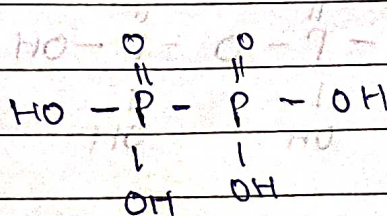 O O
|| ||
HO - P - P - OH
| |
OH OH